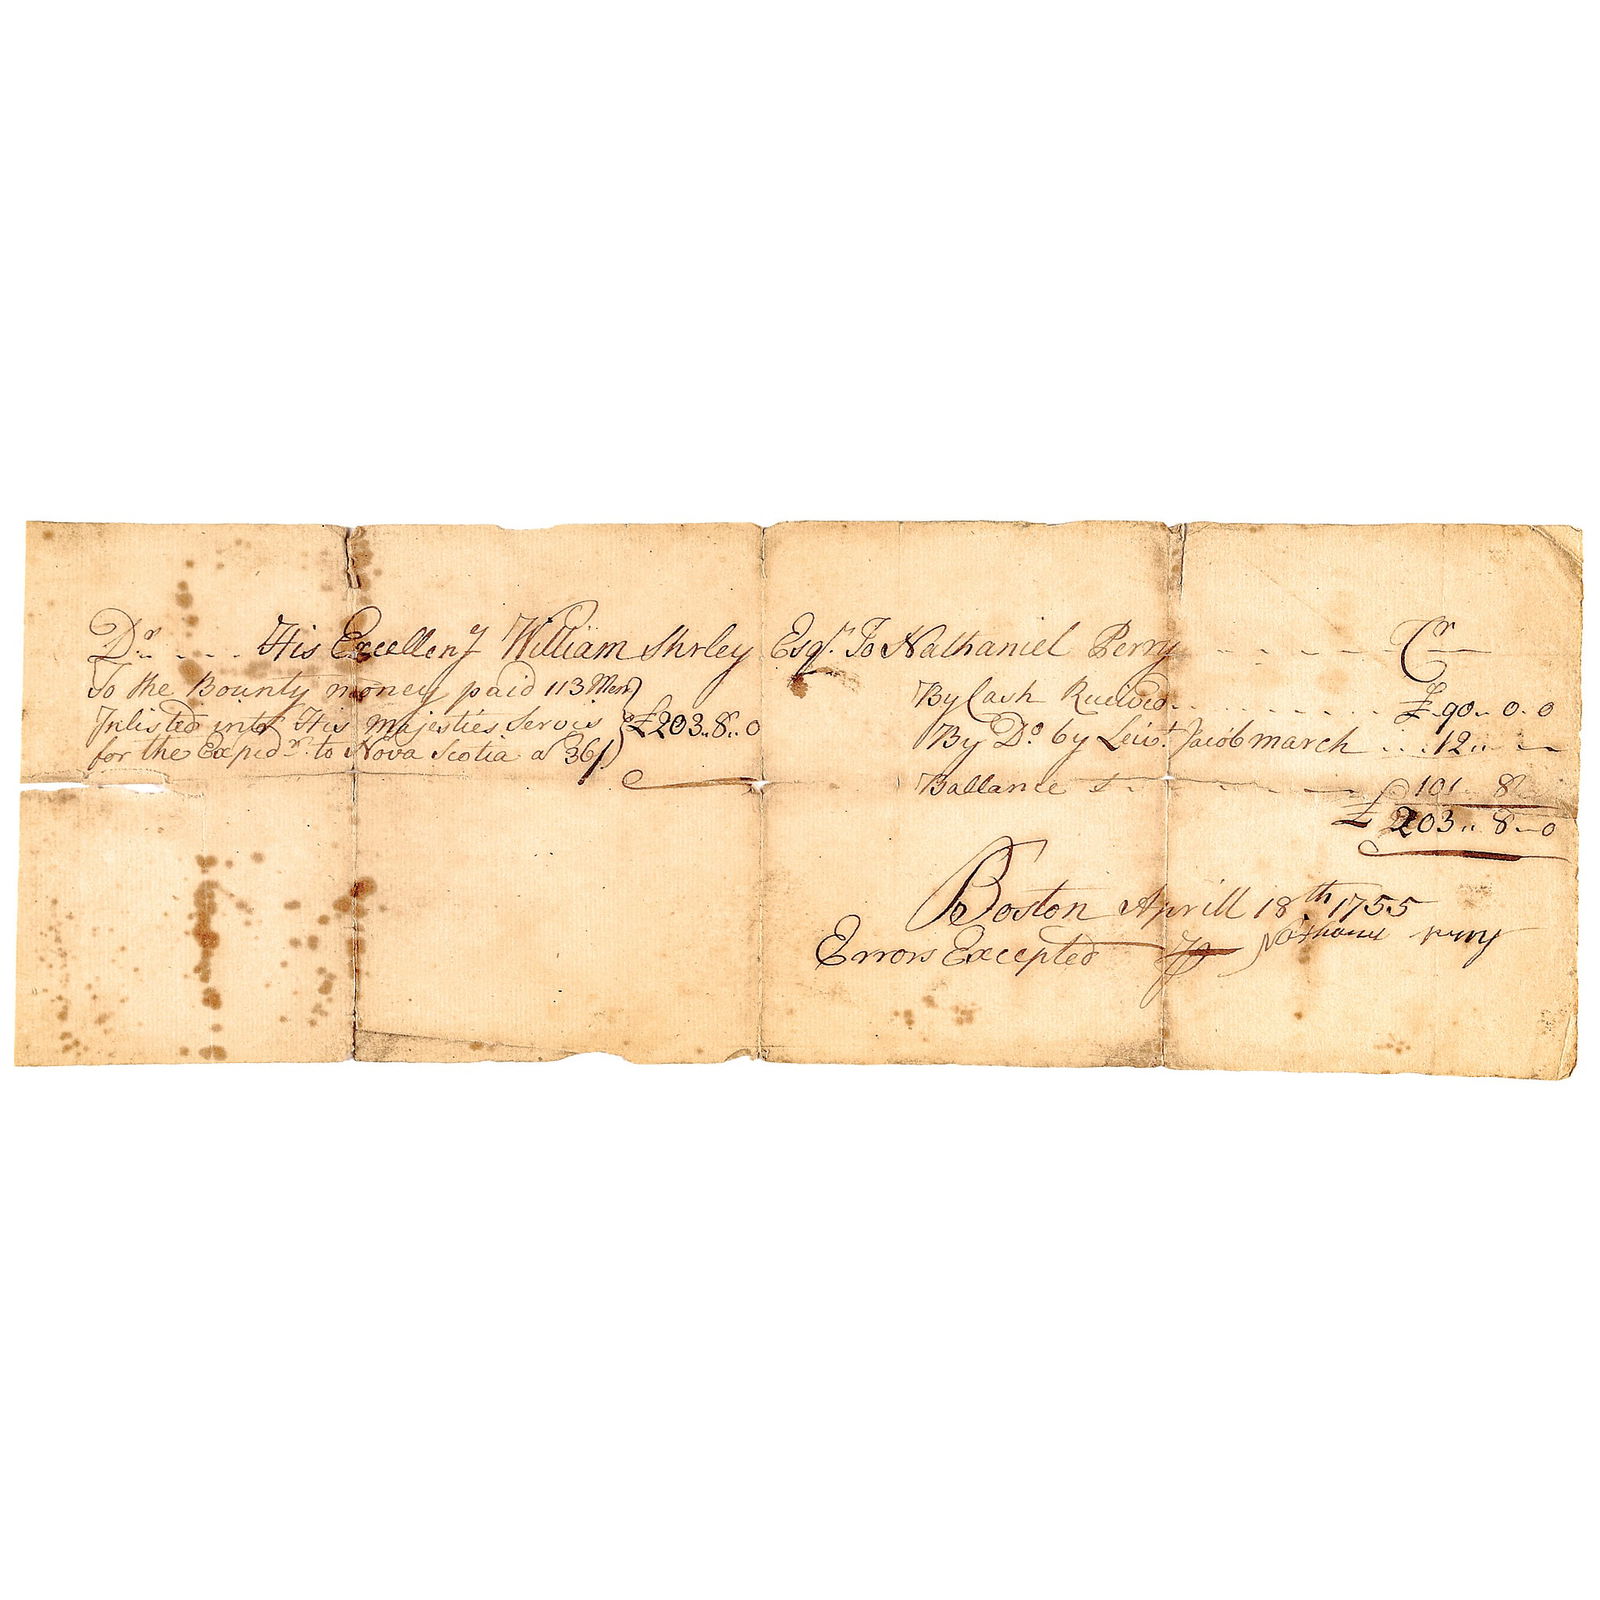 Dr. . . . His Excellency William Shrley Esqr. To Nathaniel Perry . . . . . Cr
To the Bounty money paid 113 Men
Inlisted into His Majesties Servis £203..8..0
for the Expedn. to Nova Scotia a 36/
By Cash Recived . . . . . . . . £ 90..0..0
By Do by Leiut. Jacob march . . . 12..
Ballance . . . . . . . 101 8
£ 203..8..0
Boston Aprill 18th 1755
Errors Excepted Nathaniel perry